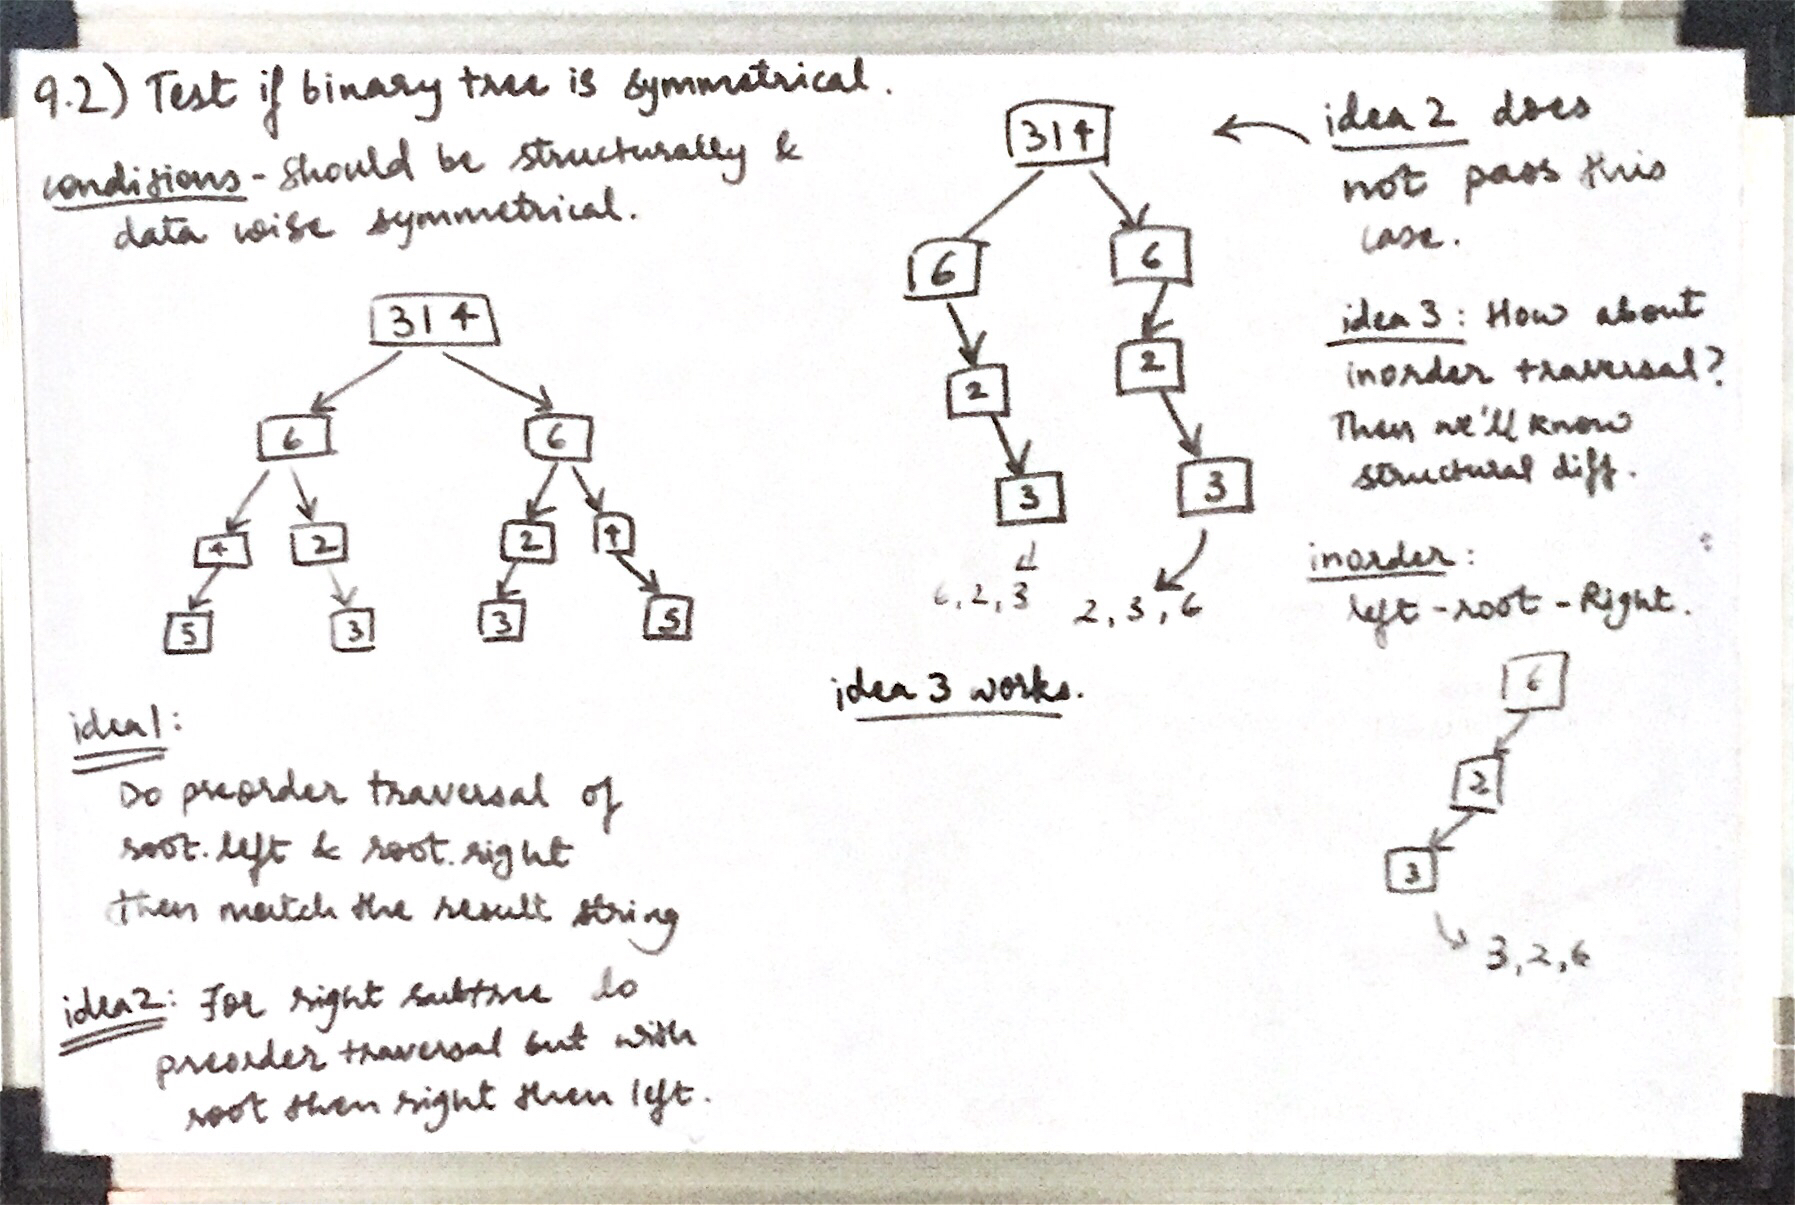 9.2) Test if binary tree is symmetrical.
conditions - Should be structurally &
data wise symmetrical.
314
6
6
4
2
2
4
5
3
3
5
idea1:
Do preorder traversal of
root.left & root.right
then match the result string
idea2: For right subtree do
preorder traversal but with
root then right then left.
314
6
6
2
2
3
3
6, 2, 3
2, 3, 6
idea 3 works.
idea 2 does
not pass this
case.
idea 3: How about
inorder traversal?
Then we'll know
structural diff.
inorder:
left - root - Right.
6
2
3
3, 2, 6